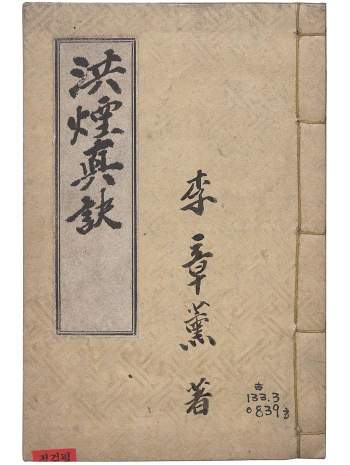 洪煙真訣
李章薰著
古
133.3
0839